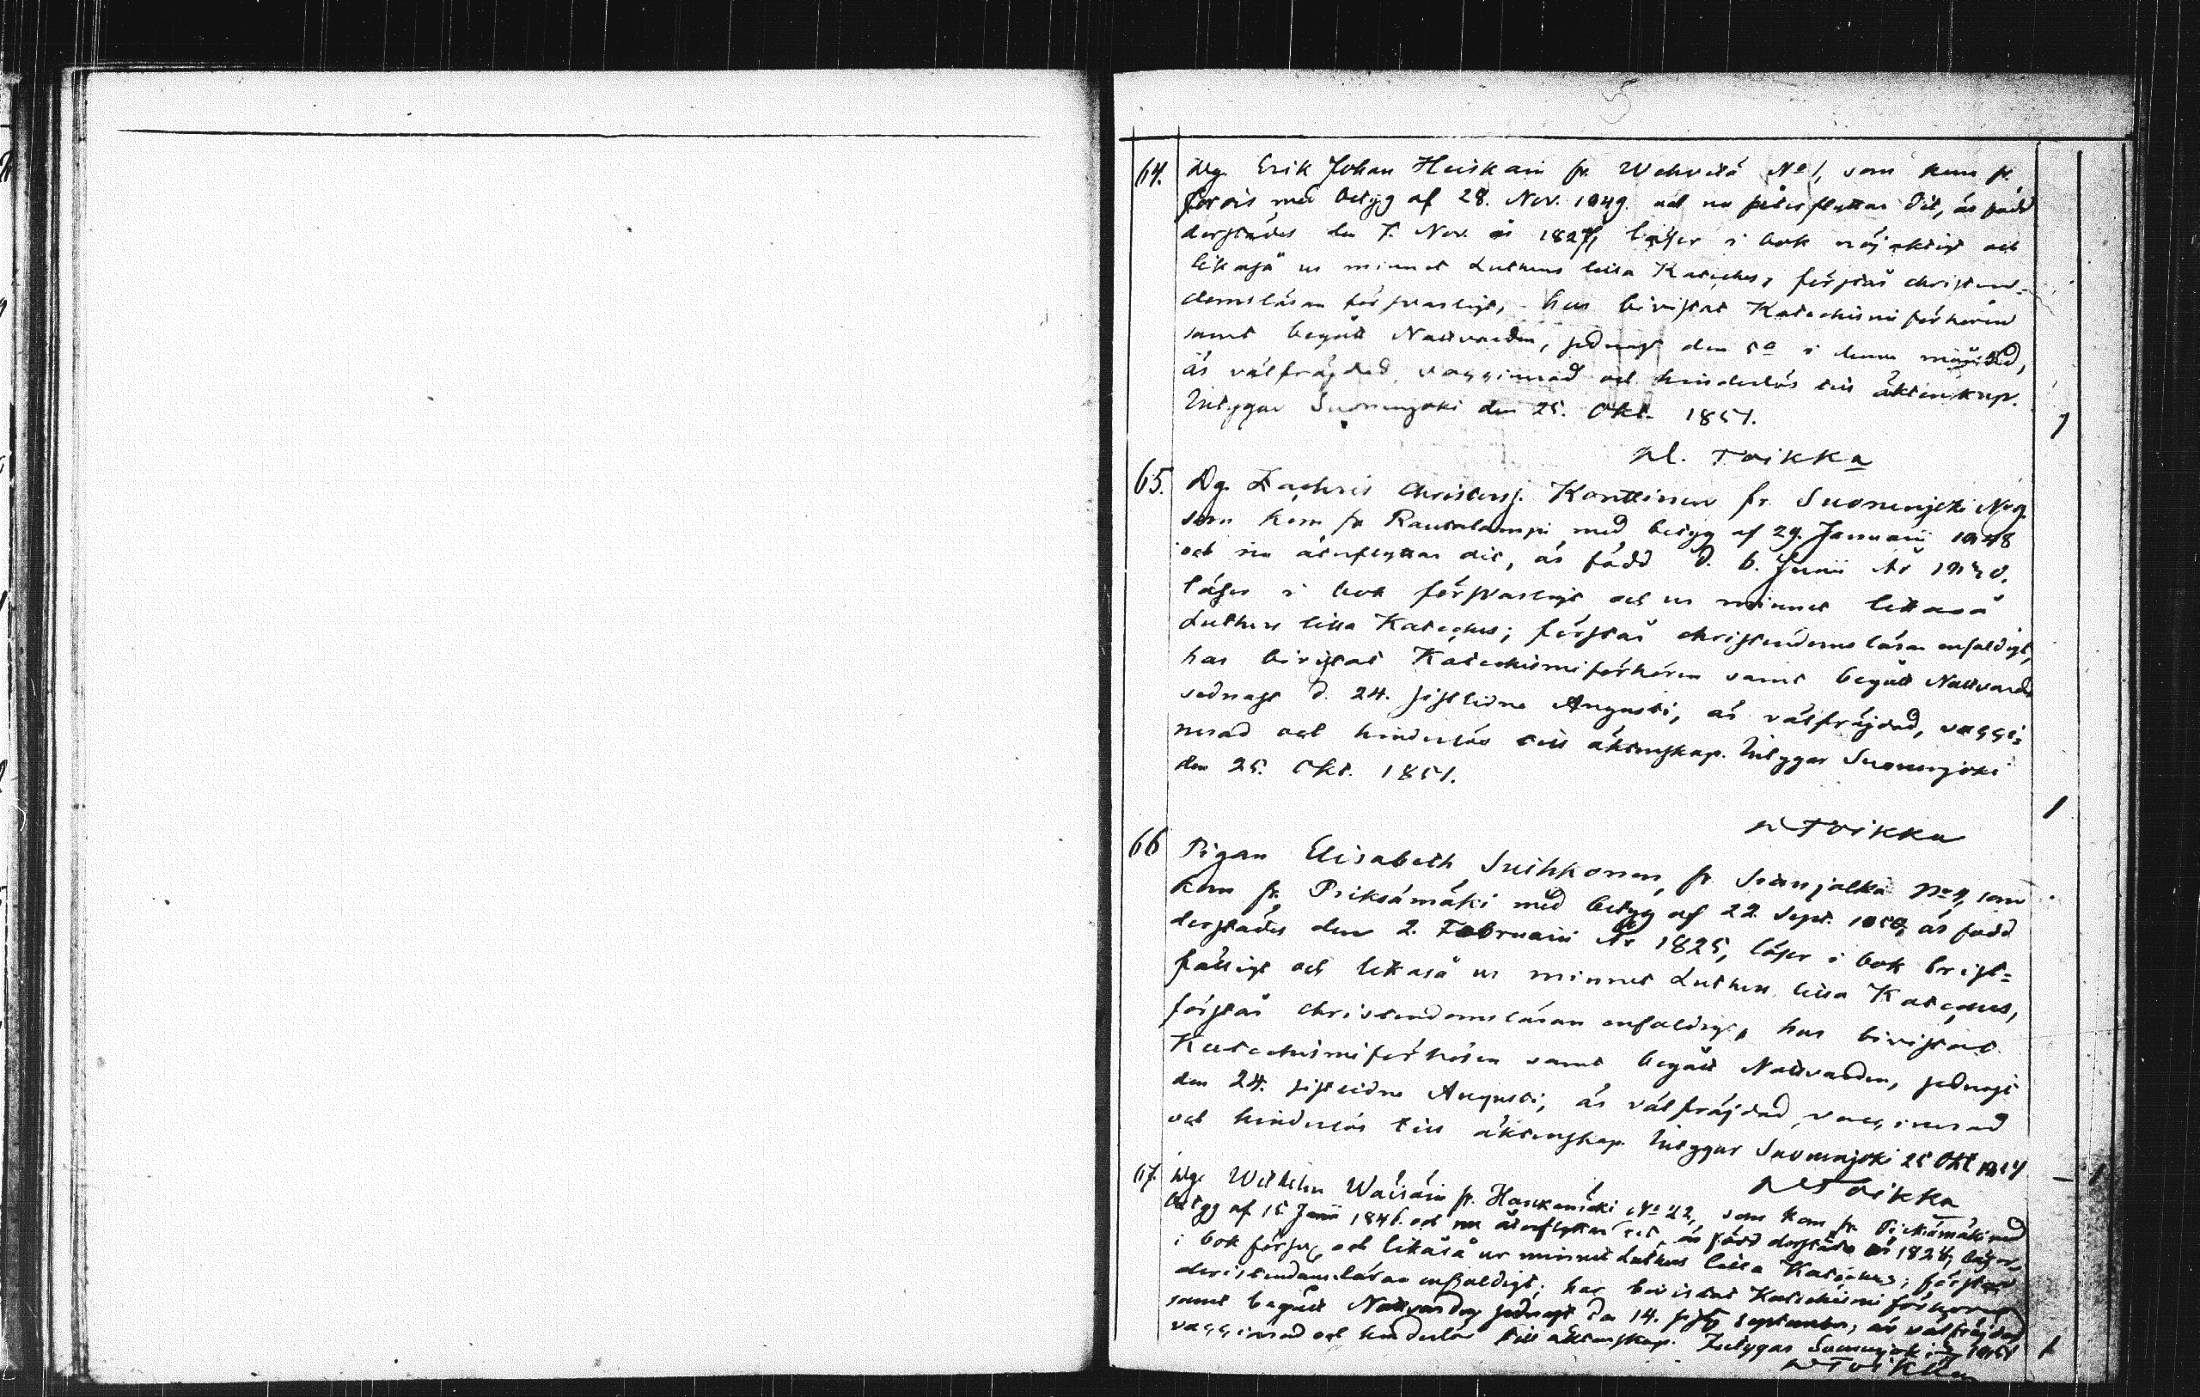 64. Dg. Erik Johan Heiskain fr. Wehvilä No 1, som kom fr.
Jorois med betyg af 28. Nov. 1849. och nu återflyttar dit, är född
derstädes den 7. Nov. år 1827, läser i bok nöjaktigt och
likaså ur minnet Luthers lilla Kateches, förstår christen-
domsläran försvarligt, har bivistat Katechismiförhören
samt begått Nattvarden, sednast den 5 i denne månad,
är välfräjdad, vaccinerad och hinderlös till äktenskap.
Intygar Suonenjoki den 25. Okt. 1851.
N. Toikka
65. Dg. Zachris Christersj. Konttinen fr. Suonenjoki No 9
som kom fr Rautalampi med betyg af 29. Januarii 1848
och nu återflyttar dit, är född d. 6. Junii År
läser i bok försvarligt och ur minnet likaså
Luthers lilla Kateches; förstår christendomsläran enfaldigt,
har bivistat Katechismiförhören samt begått Nattvard
sednast d. 24. sistlidne Augusti, är välfräjdad, vacci-
nerad och hinderlös till äktenskap. Intygar Suonenjoki
den 25. Okt. 1851.
N Toikka
66 Pigan Elisabeth Suihkonen, fr. No 4, som
kom fr. Pieksämäki med betyg af 22. Sept. 1850, är född
derstädes den 2. Februarii År 1825, läser i bok brist-
fälligt och likaså ur minnet Luthers lilla Kateches,
förstår christendomsläran enfaldigt, har bivistat
Katechismiförhören samt begått Nattvarden, sednast
den 24. sistlidne Augusti, är välfräjdad, vaccinerad
och hinderlös till äktenskap. Intygar Suonenjoki 25 Okt 1851
N Toikka
67. Dg. Wilhelm Wäisäin fr. Haukamäki No 22, som kom fr. Pieksämäki med
betyg af 15 Junii 1846. och nu återflyttar dit, är född derstädes år 1828, läser
i bok försv. och likaså ur minnet Luthers lilla Kateches; förstår
christendomsläran enfaldigt; har bivistat Katechismiförhören
samt begått Nattvarden sednast den 14. sistl. September, är välfräjdad
vaccinerad och hinderlös till äktenskap. Intygar Suonenjoki 1851
N Toikka